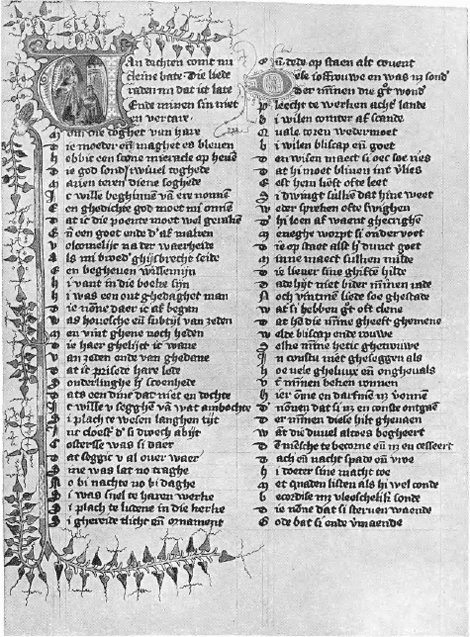 Van dichten comt mi
cleine bate Die liede
raden mi dat ict late
Ende minen sin niet
en vertare
M om die doghet van hare
D ie moeder eñ maghet es bleven
H ebbic een scone mieracle op heuē
D ie god sond' twiuel toghede
M arien teren diene soghede
I c wille beghinnē vā ere nonnen
E en ghedichte god moet mi onnē
D at ic die poente moet wel geraken
E ñ een goet ende d'af maken
V olcomelijc na der waerheide
A ls mi broed' ghijsbrecht seide
E en begheven willemijn
H i vant in die boeke sijn
H i was een out ghedaghet man
D ie nōne daer ic af began
W as houesche eñ subtijl van zeden
M en vint ghene noch heden
D ie haer ghelijct ic wane
V an zeden ende van ghedane
D at ic prisede hare lede
S onderlinghe h' scoenhede
D ats een dinc dat niet en dochte
I c wille v segghē vā wat ambochte
S i plach te wesen langhen tijt
I nt cloest' d' si droech abijt
C ostersse was si daer
D at seggic v al ouer waer
S ine was lat no traghe
N o bi nachte no bi daghe
S i was snel te haren werke
S i plach te ludene in die kerke
S i ghereide tlicht eñ ornament
E ñ dede op staen alt couent
Dese ioffrouwe en was m sond'
Der mīnen die gt wond'
P leecht te werken acht' lande
B i wilen comter af scande
Q uale toren wedermoet
B i wilen bliscap eñ goet
D en wisen maect si oec soe ries
D at hi moet bliuen int v'lies
E est hem lieft ofte leet
S i dwingt sulken dat hine weet
W eder spreken ofte swighen
D' hi loen af waent ghecrighen
M eneghe worpt si onder voet
D ie op staet alst h' dunct goet
M inne maect sulken milde
D ie lieuer sine ghiften hilde
D ade hijt niet bider mīnen rade
N och vintmen liede soe ghestade
W at si hebben gt oft clene
D at hē die mīne gheeft ghemene
W elde bliscap ende rouwe
S elke mīne hetic ghetrouwe
I n constu niet gheseggen als
H oe vele gheluux eñ onghevals
V t' mīnen beken ronnen
H ier ōme en darfmē m v'onnē
D' nōnen dat si m en conste ontgaē
D er mīnen diese hilt gheuaen
W at die duuel altoes begheert
D ē mēsche te becorne eñ m en cesseert
D ach eñ nacht spade eñ vroe
H i doeter sine macht toe
M et quaden listen als hi wel conde
B ecordise m vleeschelik' sonde
D ie nōne dat si steruen waende
G ode bat si ende v'maende